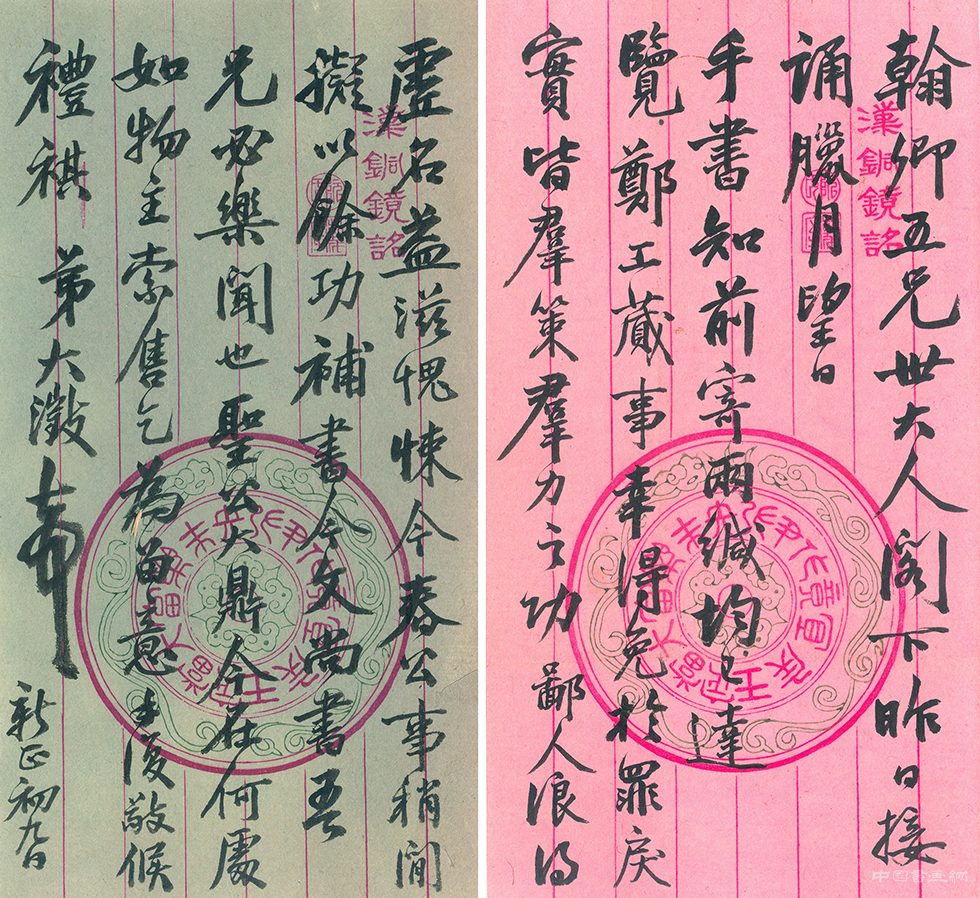 翰卿五兄世大人閣下昨日接
誦臘月望日
手書知前寄兩緘均已達
覽鄭工蕆事幸得免於罪戾
實皆羣策羣力之功鄙人浪得
漢銅鏡詺
虛名益滋愧悚今春公事稍閒
擬以餘功補書今文尚書吾
兄必樂聞也聖公大鼎今在何處
如物主索售乞為留意手復敬候
禮祺 弟大澂頓首
新正初九日
漢銅鏡詺
中国書画網